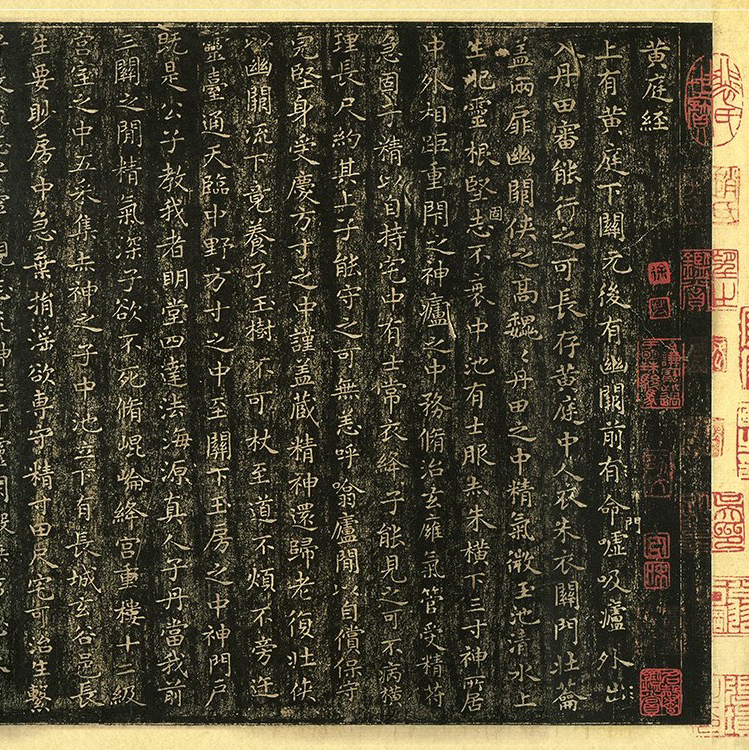 黄庭經
上有黄庭下關元後有幽闕前有命門噓吸廬外出
入丹田審能行之可長存黄庭中人衣朱衣關門壯籥
盖兩扉幽闕俠之髙魏〻丹田之中精氣微玉池清水上
生肥靈根堅固志不衰中池有士服赤朱横下三寸神所居
中外相距重閇之神廬之中務脩治玄廱氣管受精符
急固子精以自持宅中有士常衣絳子能見之可不病橫
理長尺約其上子能守之可無恙呼噏廬間以自償保守
完堅身受慶方寸之中謹盖藏精神還歸老復壯俠
以幽闕流下竟養子玉樹不可杖至道不煩不旁迕
靈臺通天臨中野方寸之中至關下玉房之中神門戶
既是公子教我者明堂四達法海源真人子丹當我前
三關之間精氣深子欲不死脩崐崘絳宮重樓十二級
宮室之中五采集赤神之子中池立下有長城玄谷邑長
生要眇房中急棄捐淫欲専守精寸田尺宅可治生繫